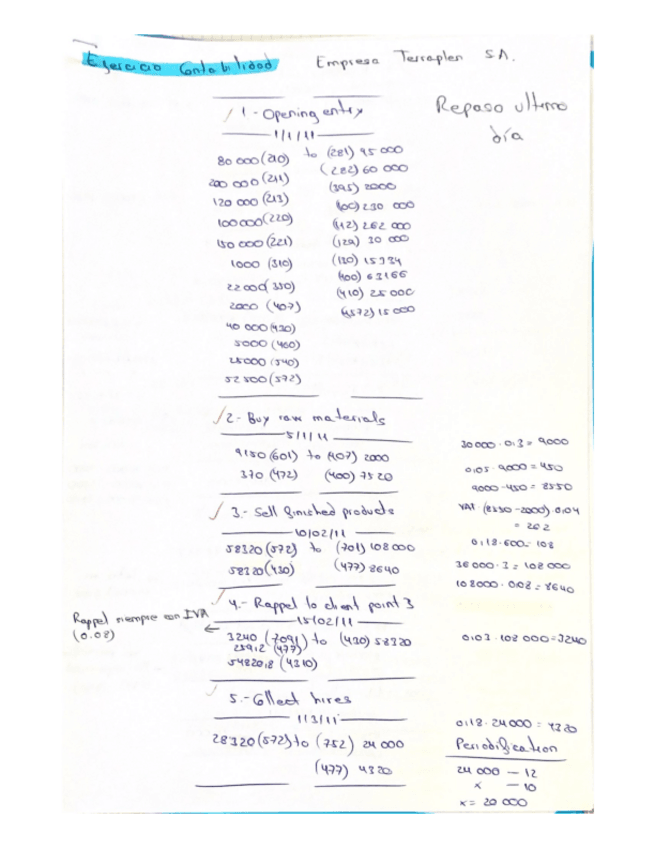 Ejercicio Contabilidad Empresa Terraplen SA.
Repaso ultimo
día
1.- Opening entry
1/1/11
80 000 (210) to (281) 95 000
200 000 (211) (282) 60 000
120 000 (213) (395) 2000
100 000 (220) (100) 230 000
150 000 (221) (112) 262 000
1000 (310) (129) 30 000
22 000 (330) (130) 15 934
2000 (407) (400) 63166
40 000 (430) (410) 25 000
5000 (460) (4572) 15 000
25000 (540)
52 500 (572)
2.- Buy raw materials
5/1/11
9150 (601) to (407) 2000
370 (472) (400) 7520
30 000 · 0'3 = 9000
0'05 · 9000 = 450
9000 - 450 = 8550
VAT (8550 - 2000) 0'04
= 262
0'18 · 600 = 108
3.- Sell finished products
10/02/11
58320 (572) to (701) 108 000
58320 (430) (477) 8640
36 000 · 3 = 108 000
108000 · 0'08 = 8640
4.- Rappel to client point 3
15/02/11
Rappel siempre con IVA
(0.08)
3240 (7091) to (430) 58320
259'2 (477)
54820'8 (4310)
0'03 · 108 000 = 3240
5.- Collect hires
1/3/11
28320 (572) to (752) 24 000
(477) 4320
0'18 · 24000 = 4320
Periodification
24 000 — 12
x — 10
x = 20 000